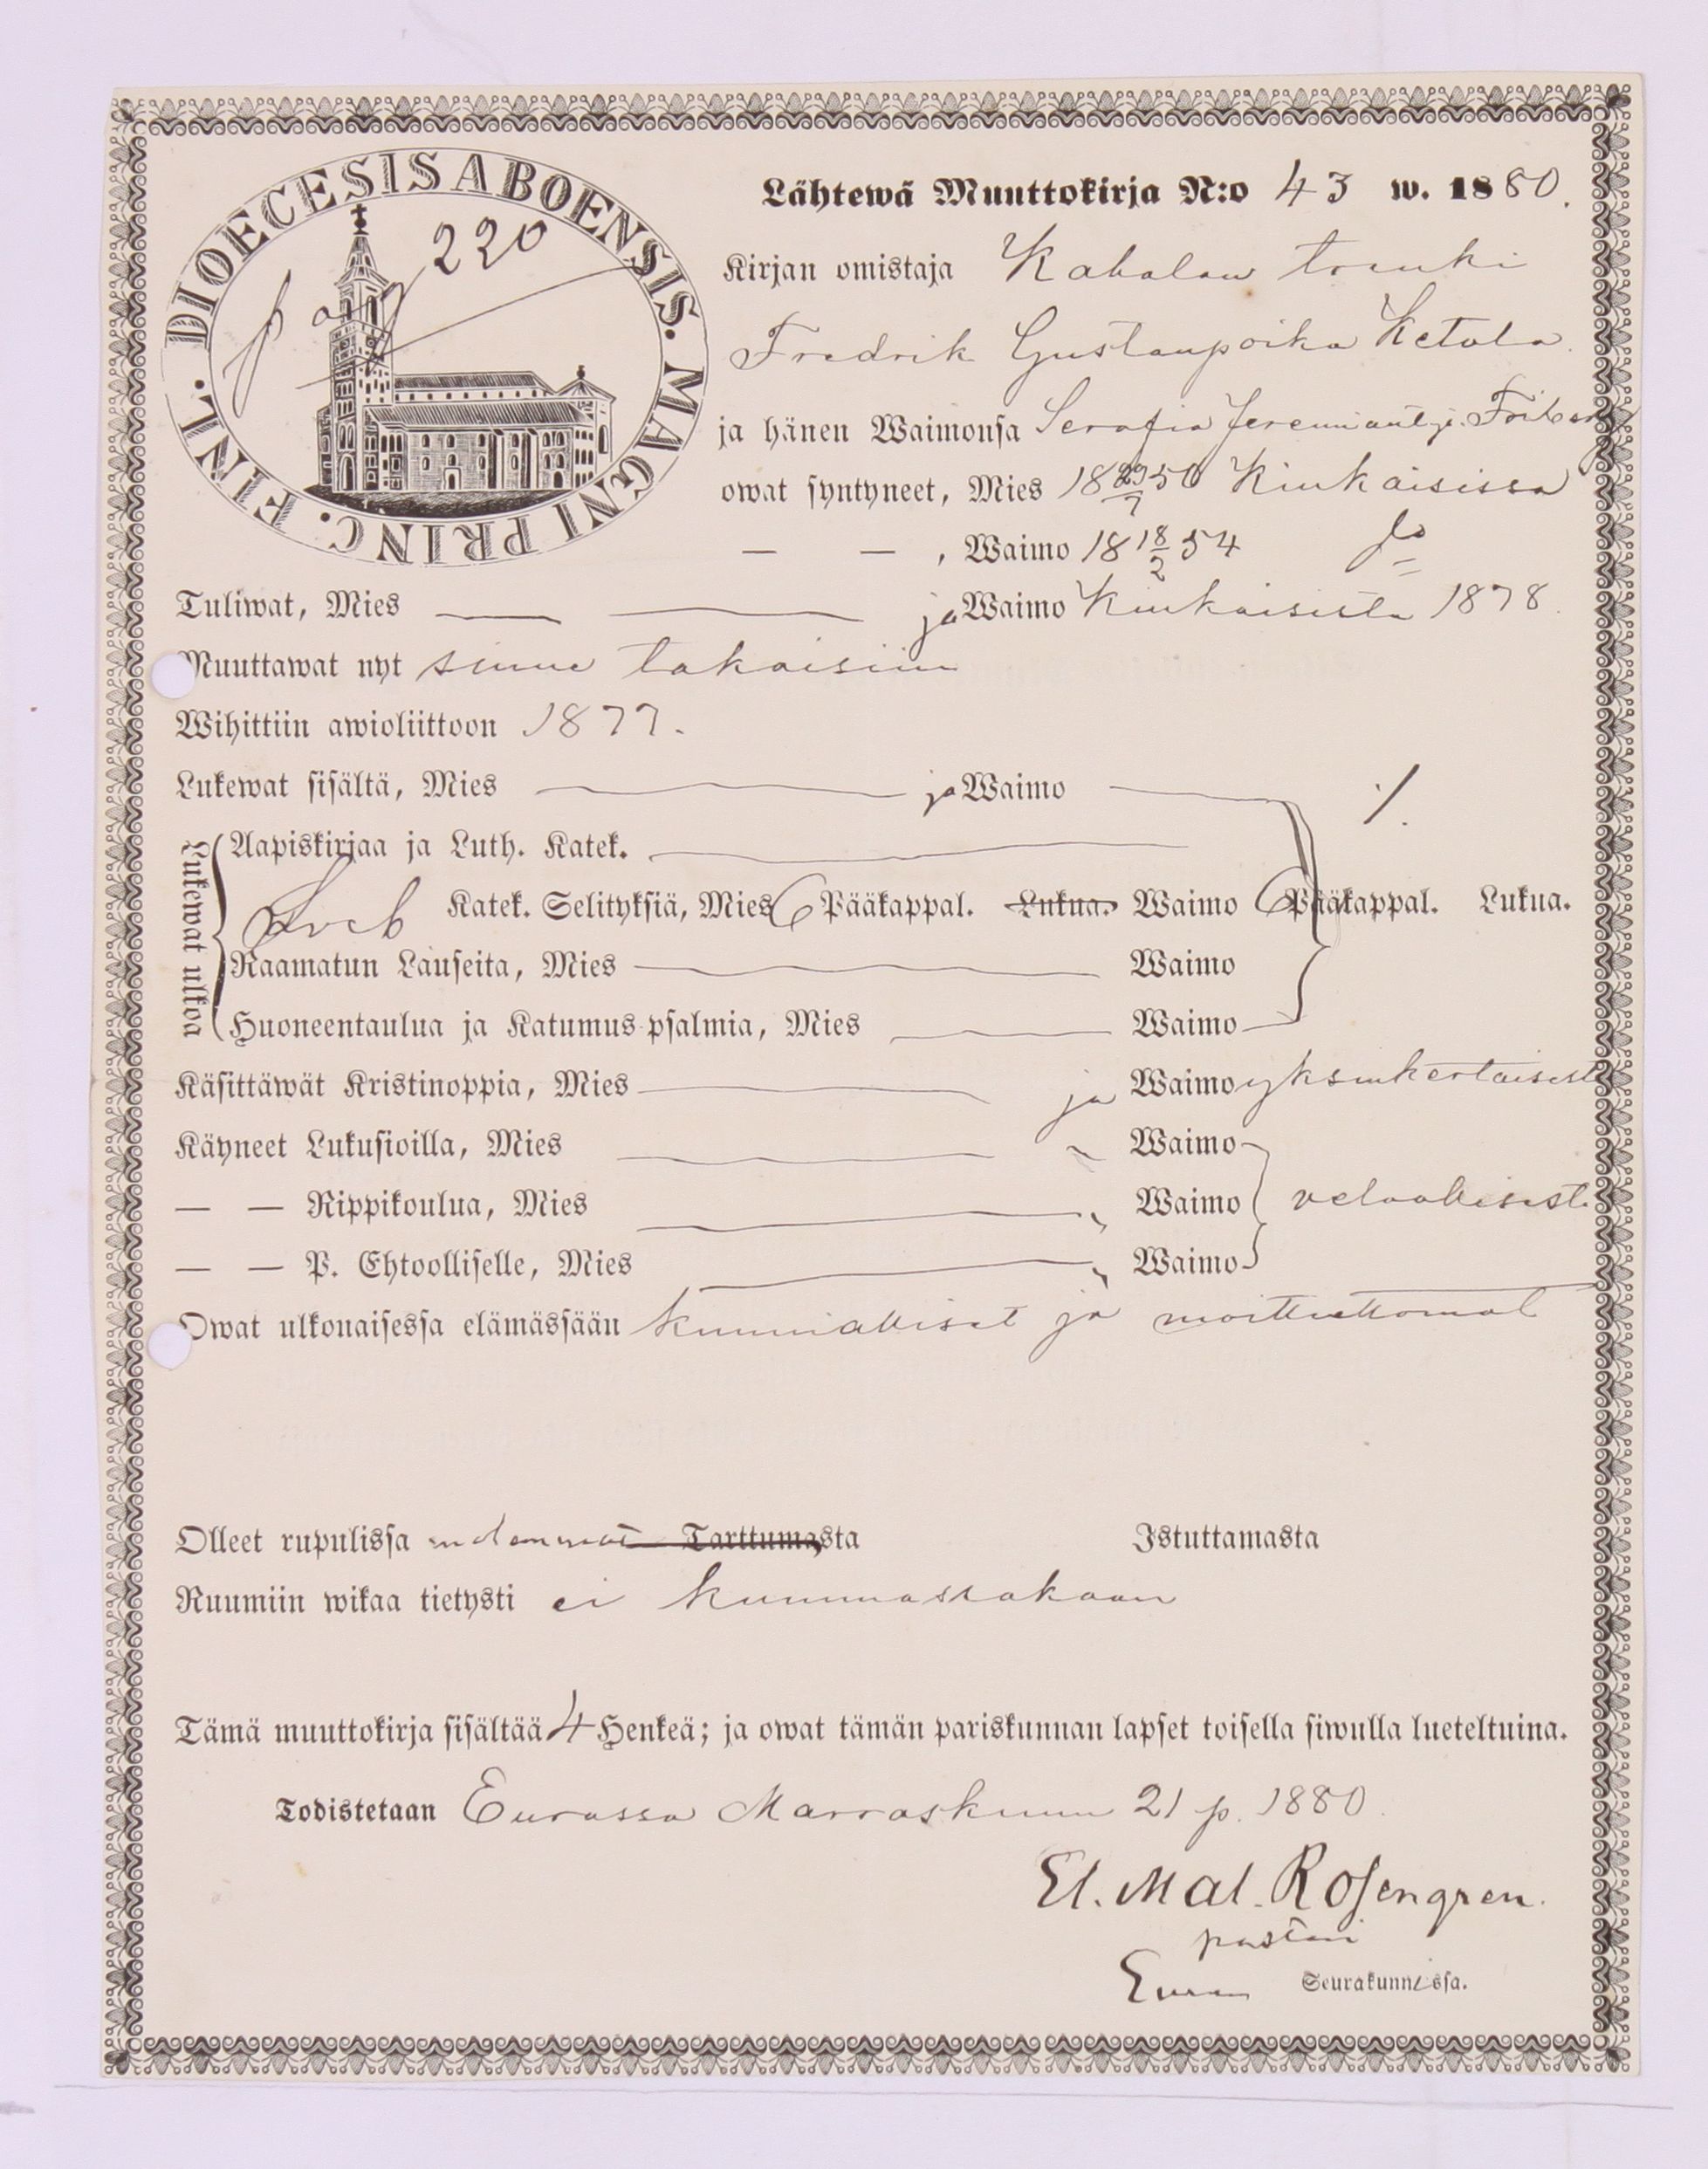 DIOECESIS ABOENSIS. MAGNI PRINC. FINL.
pag 220
Lähtewä Muuttokirja N:o 43 w. 1880.
Kirjan omistaja Kahalan trenki
Fredrik Gustaupoika Ketola.
ja hänen Waimonsa Serafia Jeremiant.
owat syntyneet, Mies 18 29/7 50 Kiukaisissa
— — , Waimo 18 18/2 54 Do
Tuliwat, Mies — — ja Waimo Kiukaisista 1878.
Muuttawat nyt sinne takaisiin
Wihittiin awioliittoon 1877.
Lukewat sisältä, Mies — ja Waimo — /.
Lukewat ulkoa
Aapiskirjaa ja Luth. Katek.
Sveb Katek. Selityksiä, Mies 6 Pääkappal. Lukua. Waimo 6 Pääkappal. Lukua.
Raamatun Lauseita, Mies — Waimo
Huoneentaulua ja Katumus-psalmia, Mies — Waimo
Käsittäwät Kristinoppia, Mies — ja Waimo yksinkertaisesti
Käyneet Lukusioilla, Mies — " Waimo
— — Rippikoulua, Mies — " Waimo
— — P. Ehtoolliselle, Mies — " Waimo
Owat ulkonaisessa elämässään kunnialliset ja moitteettomat
Olleet rupulissa molemmat Tarttumasta Istuttamasta
Ruumiin wikaa tietysti ei kummassakaan
Tämä muuttokirja sisältää 4 Henkeä; ja owat tämän pariskunnan lapset toisella siwulla lueteltuina.
Todistetaan Eurassa Marraskuun 21 p. 1880.
El. Mal. Rosengren.
pastori
Euran Seurakunnissa.